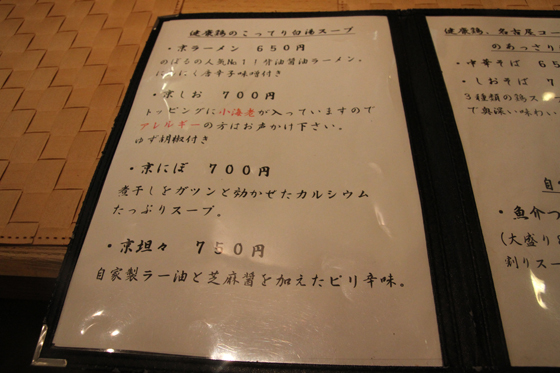 健康鶏のこってり白湯スープ
・京ラーメン 650円
のぼるの人気No.1!背油醤油ラーメン。
にんにく唐辛子味噌付き
・京しお 700円
トッピングに小海老が入っていますので
アレルギーの方はお声かけ下さい。
ゆず胡椒付き
・京にぼ 700円
煮干しをガツンと効かせたカルシウム
たっぷりスープ。
・京坦々 750円
自家製ラー油と芝麻醤を加えたピリ辛味。
健康鶏、名古屋コー
のあっさり
・中華そば 65
・しおそば 7
3種類の鶏ス
で奥深い味わい
自
・魚介つ
(大盛り
割りスー